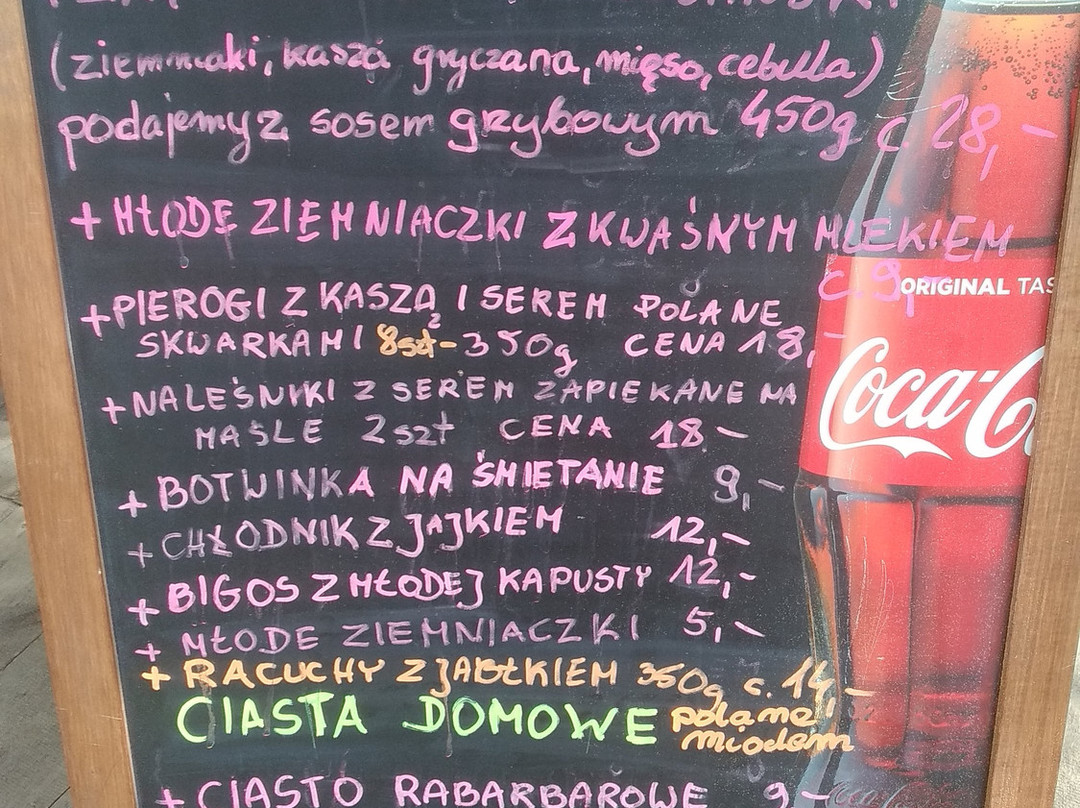 (ziemniaki, kasza gryczana, mięso, cebulla)
podajemy z sosem grzybowym 450g c. 28,-
+ MŁODE ZIEMNIACZKI Z KWAŚNYM MLEKIEM
c. 9,-
ORIGINAL TAS
+ PIEROGI Z KASZĄ I SEREM POLANE
SKWARKAMI 8szt - 350g CENA 18,-
Coca-Co
+ NALEŚNIKI Z SEREM ZAPIEKANE NA
MAŚLE 2szt CENA 18.-
+ BOTWINKA NA ŚMIETANIE 9,-
+ CHŁODNIK Z JAJKIEM 12,-
+ BIGOS Z MŁODEJ KAPUSTY 12,-
+ MŁODE ZIEMNIACZKI 5,-
+ RACUCHY Z JABŁKIEM 350g c. 14,-
CIASTA DOMOWE polane
miodem
+ CIASTO RABARBAROWE 9-